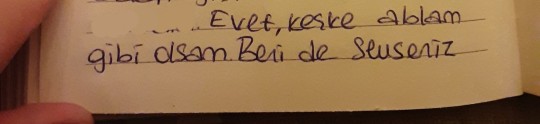 ... Evet, keşke ablam
gibi olsam. Beni de sevseniz